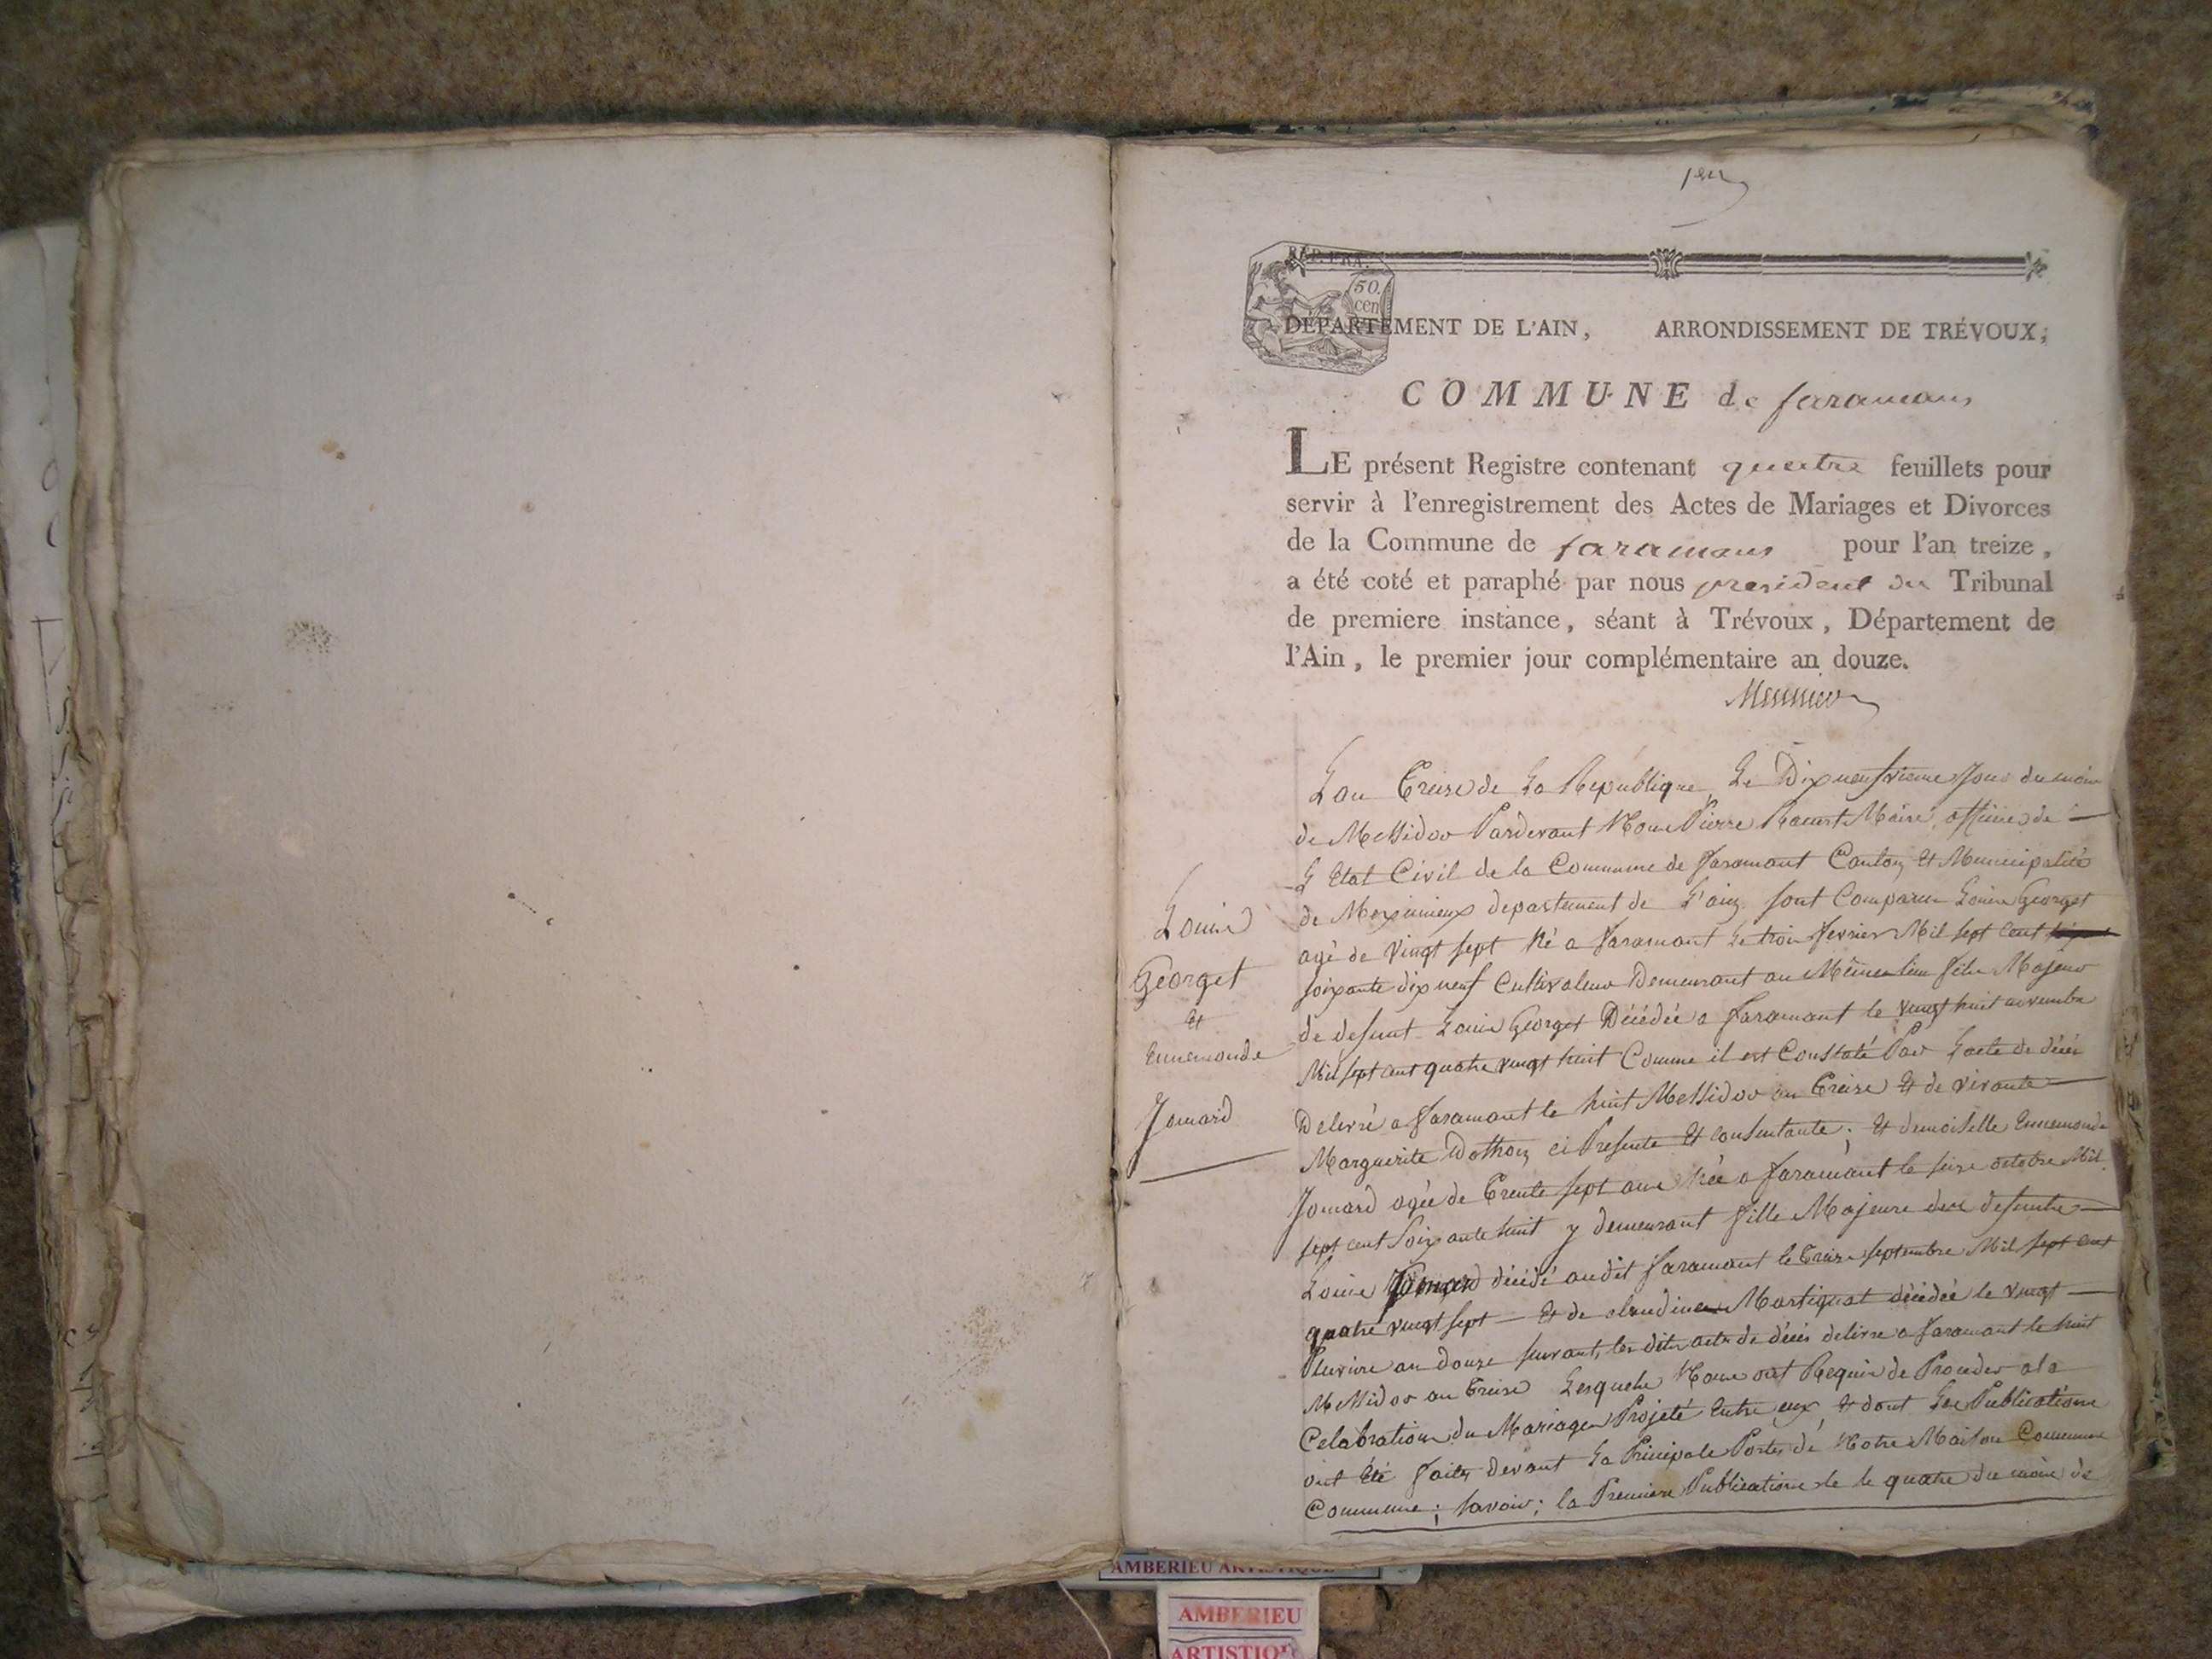 1er
REP. FRA.
50.
cen
DÉPARTEMENT DE L'AIN, ARRONDISSEMENT DE TRÉVOUX;
COMMUNE de faramans
LE présent Registre contenant quatre feuillets pour
servir à l'enregistrement des Actes de Mariages et Divorces
de la Commune de faramans pour l'an treize,
a été coté et paraphé par nous president du Tribunal
de premiere instance, séant à Trévoux, Département de
l'Ain, le premier jour complémentaire an douze.
Lan Treize de La Republique Le Dix neufvieme Jour du mois
de Messidor Pardevant Nous Pierre Maire officier de
L'Etat Civil de la Commune de faramant Canton Et Municipalité
de Meximieux departement de L'ain sont Comparus Louis Georget
agé de vingt sept Né a faramant Le trois fevrier Mil sept Cent
soixante dix neuf Cultivateur Demeurant au Même lieu fils Majeur
de defunt Louis Georget Décédée a faramant le vingt huit novembre
Mil sept cent quatre vingt huit Comme il est Constaté Par Lacte de décés
Delivré a faramant le huit Messidor an Treize Et de vivante
Marguerite Dothon ci Presente Et consentante; Et demoiselle Ennemonde
Jomard agée de Trente sept ans Née a faramant le seize octobre Mil
sept cent soixante huit y demeurant fille Majeure des defunts
Louis Jomard décédé audit faramant le Treize septembre Mil sept cent
quatre vingt sept Et de claudine Martignat décédée le vingt
Pluviose an douze suivant les dits actes de décés delivré a faramant le huit
Messidor an Treize Lesquels Nous ont Requis de Proceder a la
Celebration du Mariage Projeté Entre eux, Et dont Les Publications
ont Eté faites devant La Principale Porte de Notre Maison Commune
Commune; savoir; la Premiere Publication le le quatre du mois de
Louis
Georget
Et
Ennemonde
Jomard
AMBERIEU ARTISTIQUE
AMBERIEU
ARTISTIQUE